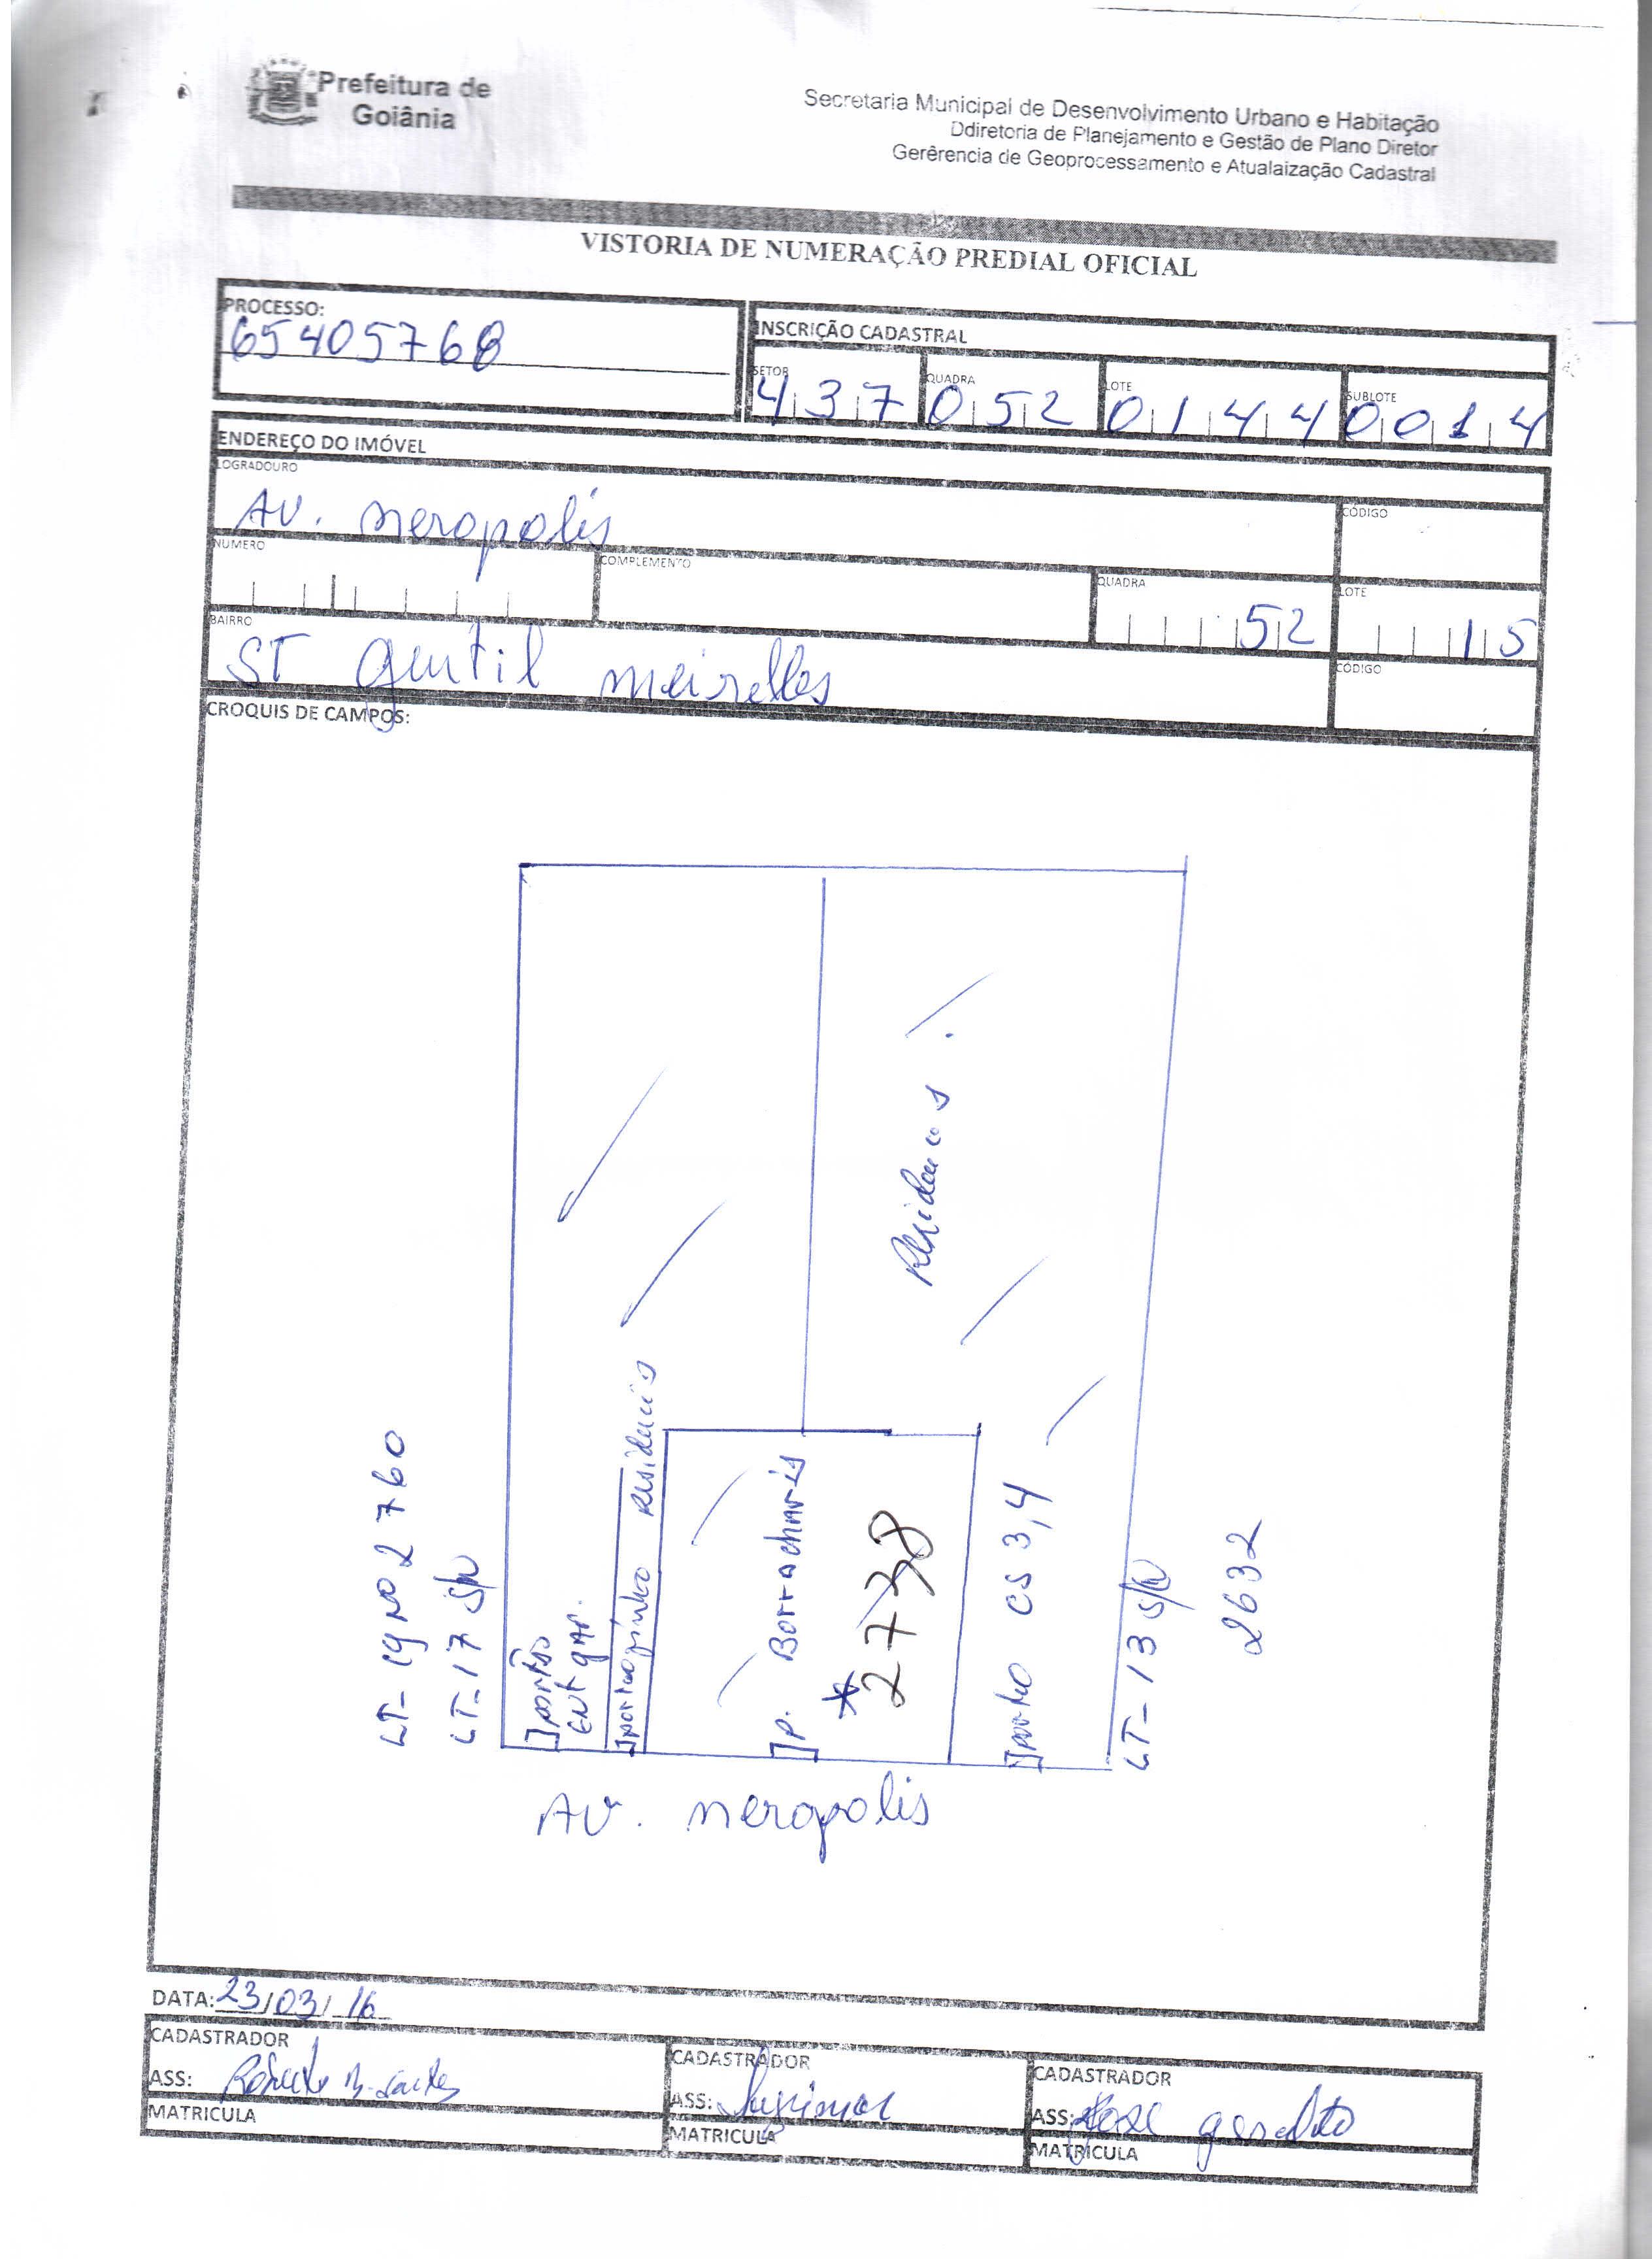 Prefeitura de
Goiânia
Secretaria Municipal de Desenvolvimento Urbano e Habitação
Ddiretoria de Planejamento e Gestão de Plano Diretor
Gerêrencia de Geoprocessamento e Atualaização Cadastral
VISTORIA DE NUMERAÇÃO PREDIAL OFICIAL
PROCESSO:
65405768
INSCRIÇÃO CADASTRAL
SETOR QUADRA LOTE SUBLOTE
437 052 0144 0014
ENDEREÇO DO IMÓVEL
LOGRADOURO CÓDIGO
AV. neropolis
NUMERO COMPLEMENTO QUADRA LOTE
52 15
BAIRRO CÓDIGO
ST gentil meirelles
CROQUIS DE CAMPOS:
LT-19 No 2760
LT-17 S/N
portão
ENT gAr.
portãozinho Residencia
P. Borracharia
*2738
Residencias
portão CS 3,4
LT-13 S/N
2632
AV. neropolis
DATA: 23/03/16
CADASTRADOR CADASTRADOR CADASTRADOR
ASS: Roberto ASS: ASS: José geraldo
MATRICULA MATRICULA MATRICULA